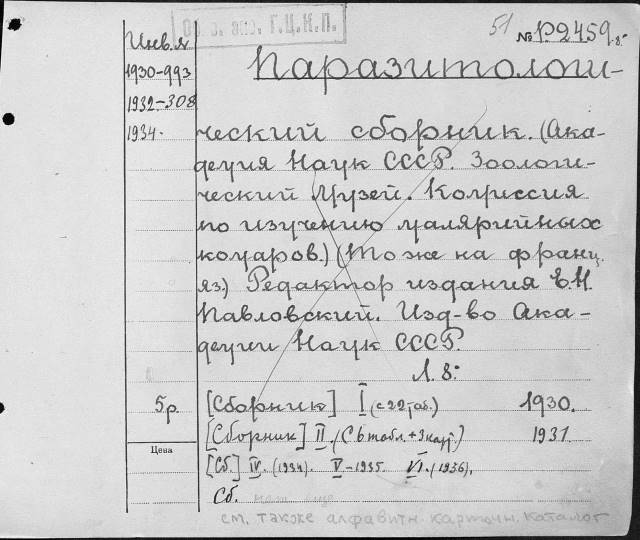 Г.Ц.К.П.
51 № Р.2459 8°
Инв. №
1930-993
1932-308
1934.
Паразитологи-
ческий сборник. (Ака-
демия Наук СССР. Зоологи-
ческий Музей. Комиссия
по изучению малярийных
комаров.) (То же на франц.
яз.) Редактор издания Е.Н.
Павловский. Изд-во Ака-
демии Наук СССР.
Л. 8°
5 р. [Сборник] I (с 22 таб.) 1930.
[Сборник] II. (С 6 табл. + 3 карт.) 1931
Цена
[Сб.] IV. (1934). V-1935. VI. (1936),
Сб.
см. также алфавитн. карточн. каталог